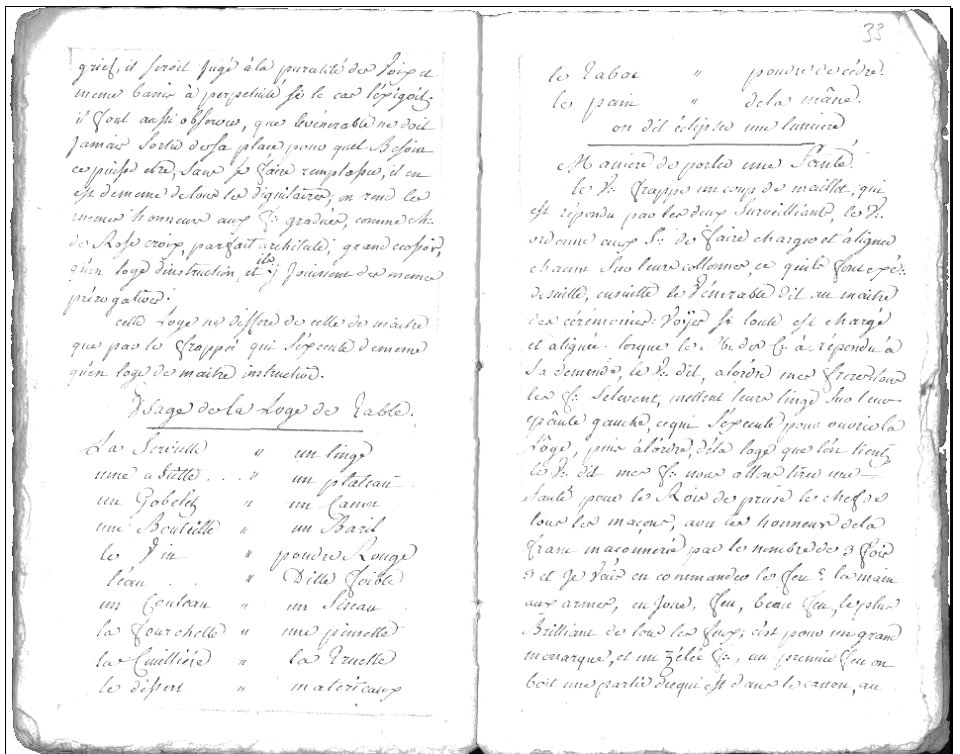 grief, il seroit jugé à la puralité des Voix et
meme banis à perpetuité si le cas l'éxigoit;
il faut aussi observer, que le vénérable ne doit
Jamais sortir de sa place pour quel Besoin
ce puisse etre, sans se faire remplasser, il en
est de meme de tous les dignitaires; on rend les
memes honneurs aux f∴ gradués, comme
de Rose croix, parfait architecte, grand ecossois,
qu'en loge d'instruction, et ils y Jouissent des memes
prérogatives.
cette Loge ne differe de celle de maitre
que par le frappé qui s'éxecute de meme
qu'en loge de maitre instruction.
Usage de la Loge de Table.
La Serviette " un linge
une assiette . . . " un plateau
un Gobelet " un Canon
une Bouteille " un Baril
le Vin " poudre Rouge
l'eau . . " Ditte foible
un Couteau " un
la fourchette " une pinsette
la Cuilliere " la Truelle
le dessert " materieaux
33
le Tabac " poudre de cédre.
le pain " de la mâne.
on dit éclipser une lumiere
Maniere de porter une Santé.
le V∴ frappe un coup de maillet, qui
est répondu par les deux Surveilliants, le V∴
ordonne aux S∴ de faire charger et aligner
chacun sur leurs collonnes, ce qu'ils font
ensuitte le Vénérable dit au maitre
des cérémonies: Voÿez si toute est chargé
et alignée. lorque le M. des C∴ a répondu à
sa demande, le V∴ dit, a l'ordre mes freres tous
les f∴ se levent, mettent leurs linge sur leur
epaule gauche, ce qui s'éxecute pour ouvrir la
Lôge, puis à l'ordre, de la loge que l'on tient,
le V∴ dit mes f∴ nous allons tirer une
Santé pour le Rois de pruse le chef de
tous les maçons, avec les honneurs de la
franc maçonnerie par le nombre de 3 fois
3 et Je vais en commander les feu la main
aux armes, en Joue, feu, beau feu, le plus
Brilliant de tous les feux; c'est pour un grand
monarque, et un zélée f∴, au premier feu on
boit une partie de ce qui est dans le canon, au